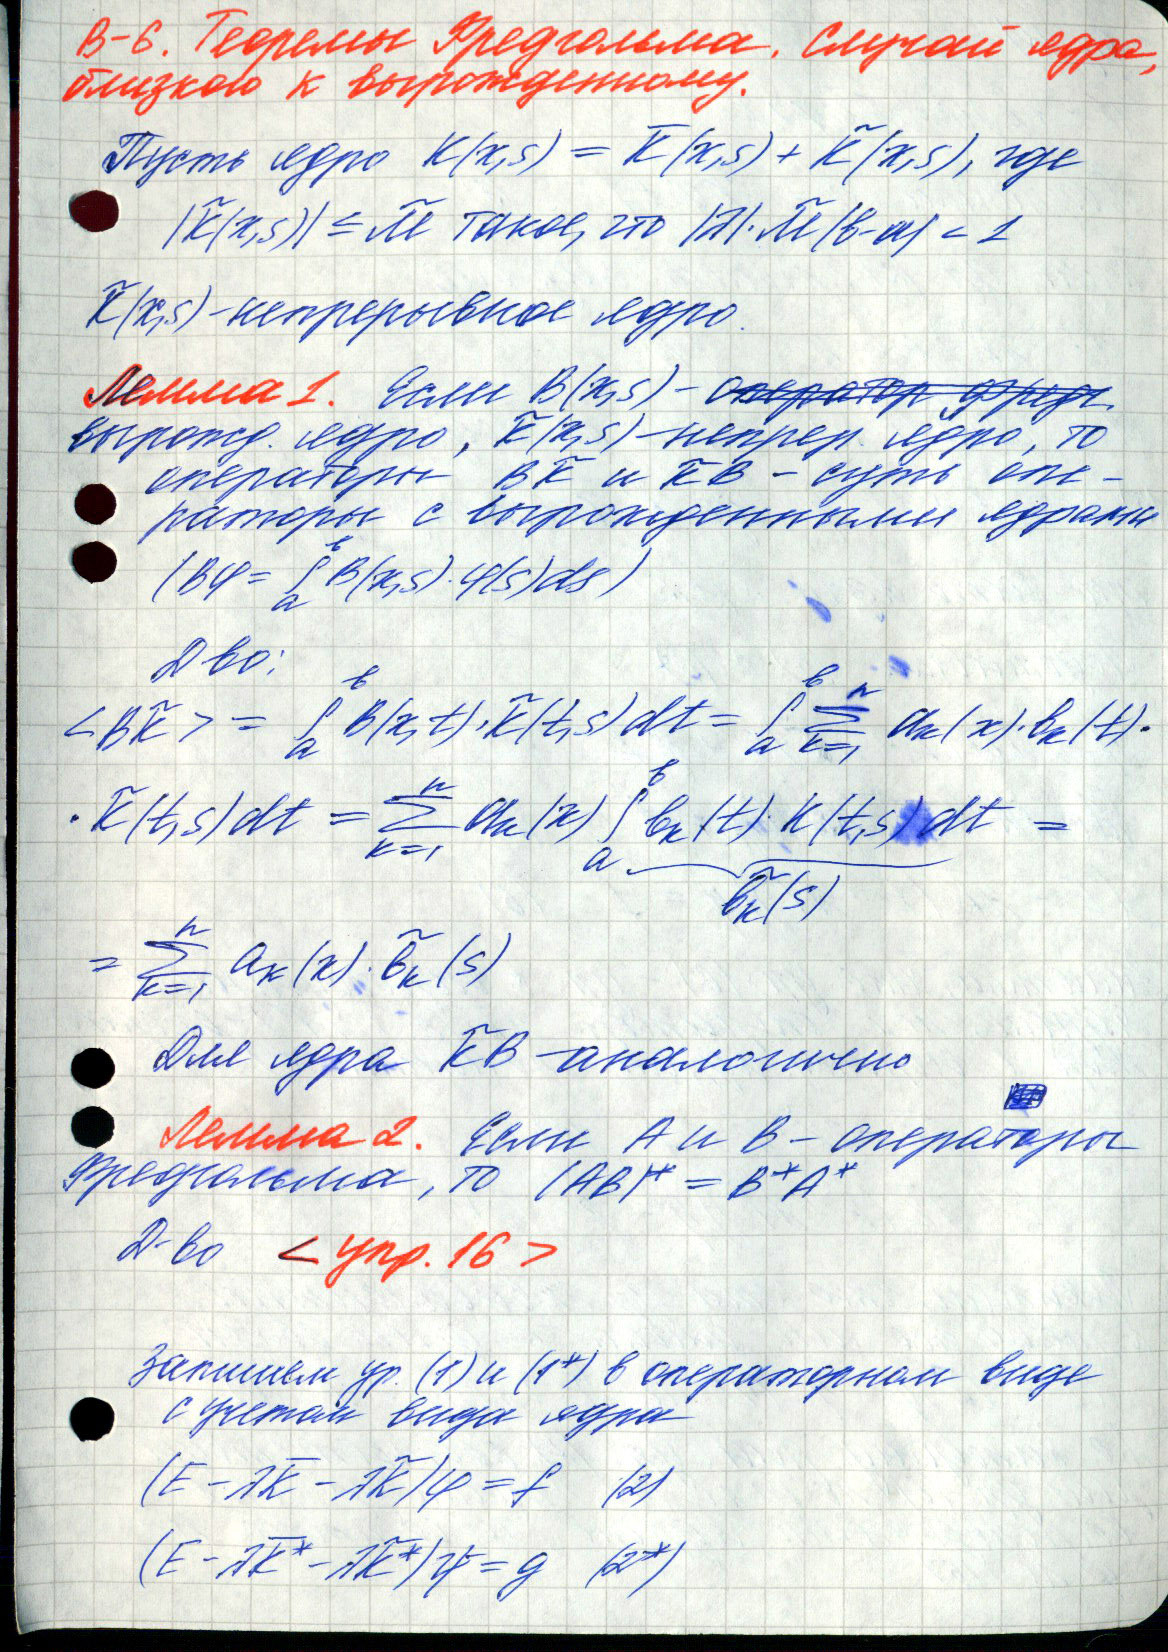 В-6. Теоремы Фредгольма. Случай ядра,
близкого к вырожденному.
Пусть ядро K(x,s) = K̅(x,s) + K̃(x,s), где
|K̃(x,s)| ≤ M̃ такое, что |λ|·M̃(b-a) < 1
K̃(x,s) - непрерывное ядро.
Лемма 1. Если B(x,s) - оператор Фредг.
вырожд. ядро, K̃(x,s) - непрер. ядро, то
операторы BK̃ и K̃B - суть опе-
раторы с вырожденными ядрами
(Bφ = ∫ₐᵇ B(x,s)·φ(s)ds)
Д-во:
<BK̃> = ∫ₐᵇ B(x,t)·K̃(t,s)dt = ∫ₐᵇ Σₖ₌₁ⁿ aₖ(x)·bₖ(t)·
·K̃(t,s)dt = Σₖ₌₁ⁿ aₖ(x) ∫ₐᵇ bₖ(t)·K(t,s)dt =
b̃ₖ(s)
= Σₖ₌₁ⁿ aₖ(x)·b̃ₖ(s)
Для ядра K̃B - аналогично
Лемма 2. Если A и B - операторы
Фредгольма, то (AB)* = B*A*
Д-во <упр. 16>
Запишем ур. (1) и (1*) в операторном виде
с учетом вида ядра
(E - λK̅ - λK̃)φ = f (2)
(E - λK̅* - λK̃*)ψ = g (2*)